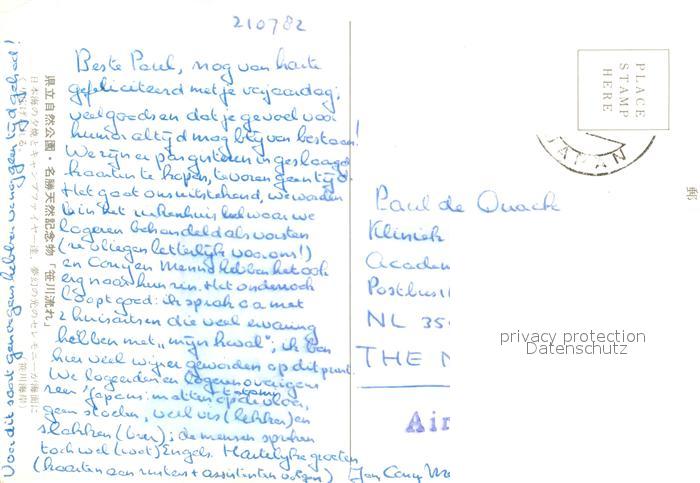 210782
Beste Paul, nog van harte
gefeliciteerd met je verjaardag;
veel goeds en dat je gevoel voor
humor altijd mag blijven bestaan!
We zijn er pas gisteren in geslaagd
kaarten te kopen, tevoren geen tijd.
Het gaat ons uitstekend, we worden
in het ziekenhuis bel waar we
logeren behandeld als vorsten
(ze vliegen letterlijk voor ons!)
en Cony en Menno hebben het ook
erg naar hun zin. Het onderzoek
loopt goed: ik sprak o.a. met
2 huisartsen die veel ervaring
hebben met "mijn kwal"; ik ben
hier veel wijzer geworden op dit punt.
We logeerden en logeren overigens
zeer Japans: matten op de vloer,
geen stoelen, veel vis (lekker) en
slakken (brr); de mensen spreken
toch wel (wat) Engels. Hartelijke groeten
(kaarten aan zusters + assistenten volgen) Jan Cony Me
Voor dit soort genoegens hebben we nog geen tijd gehad!
県立自然公園・名勝天然記念物「笹川流れ」
日本海の夕焼とキャンプファイヤー達、夢幻の光のセレモニーが海面に
くりひろげられる。(笹川海岸)
PLACE
STAMP
HERE
JAPAN
郵
Paul de Quack
Kliniek
Academ
Postbus
NL 35
THE N
Air
privacy protection
Datenschutz